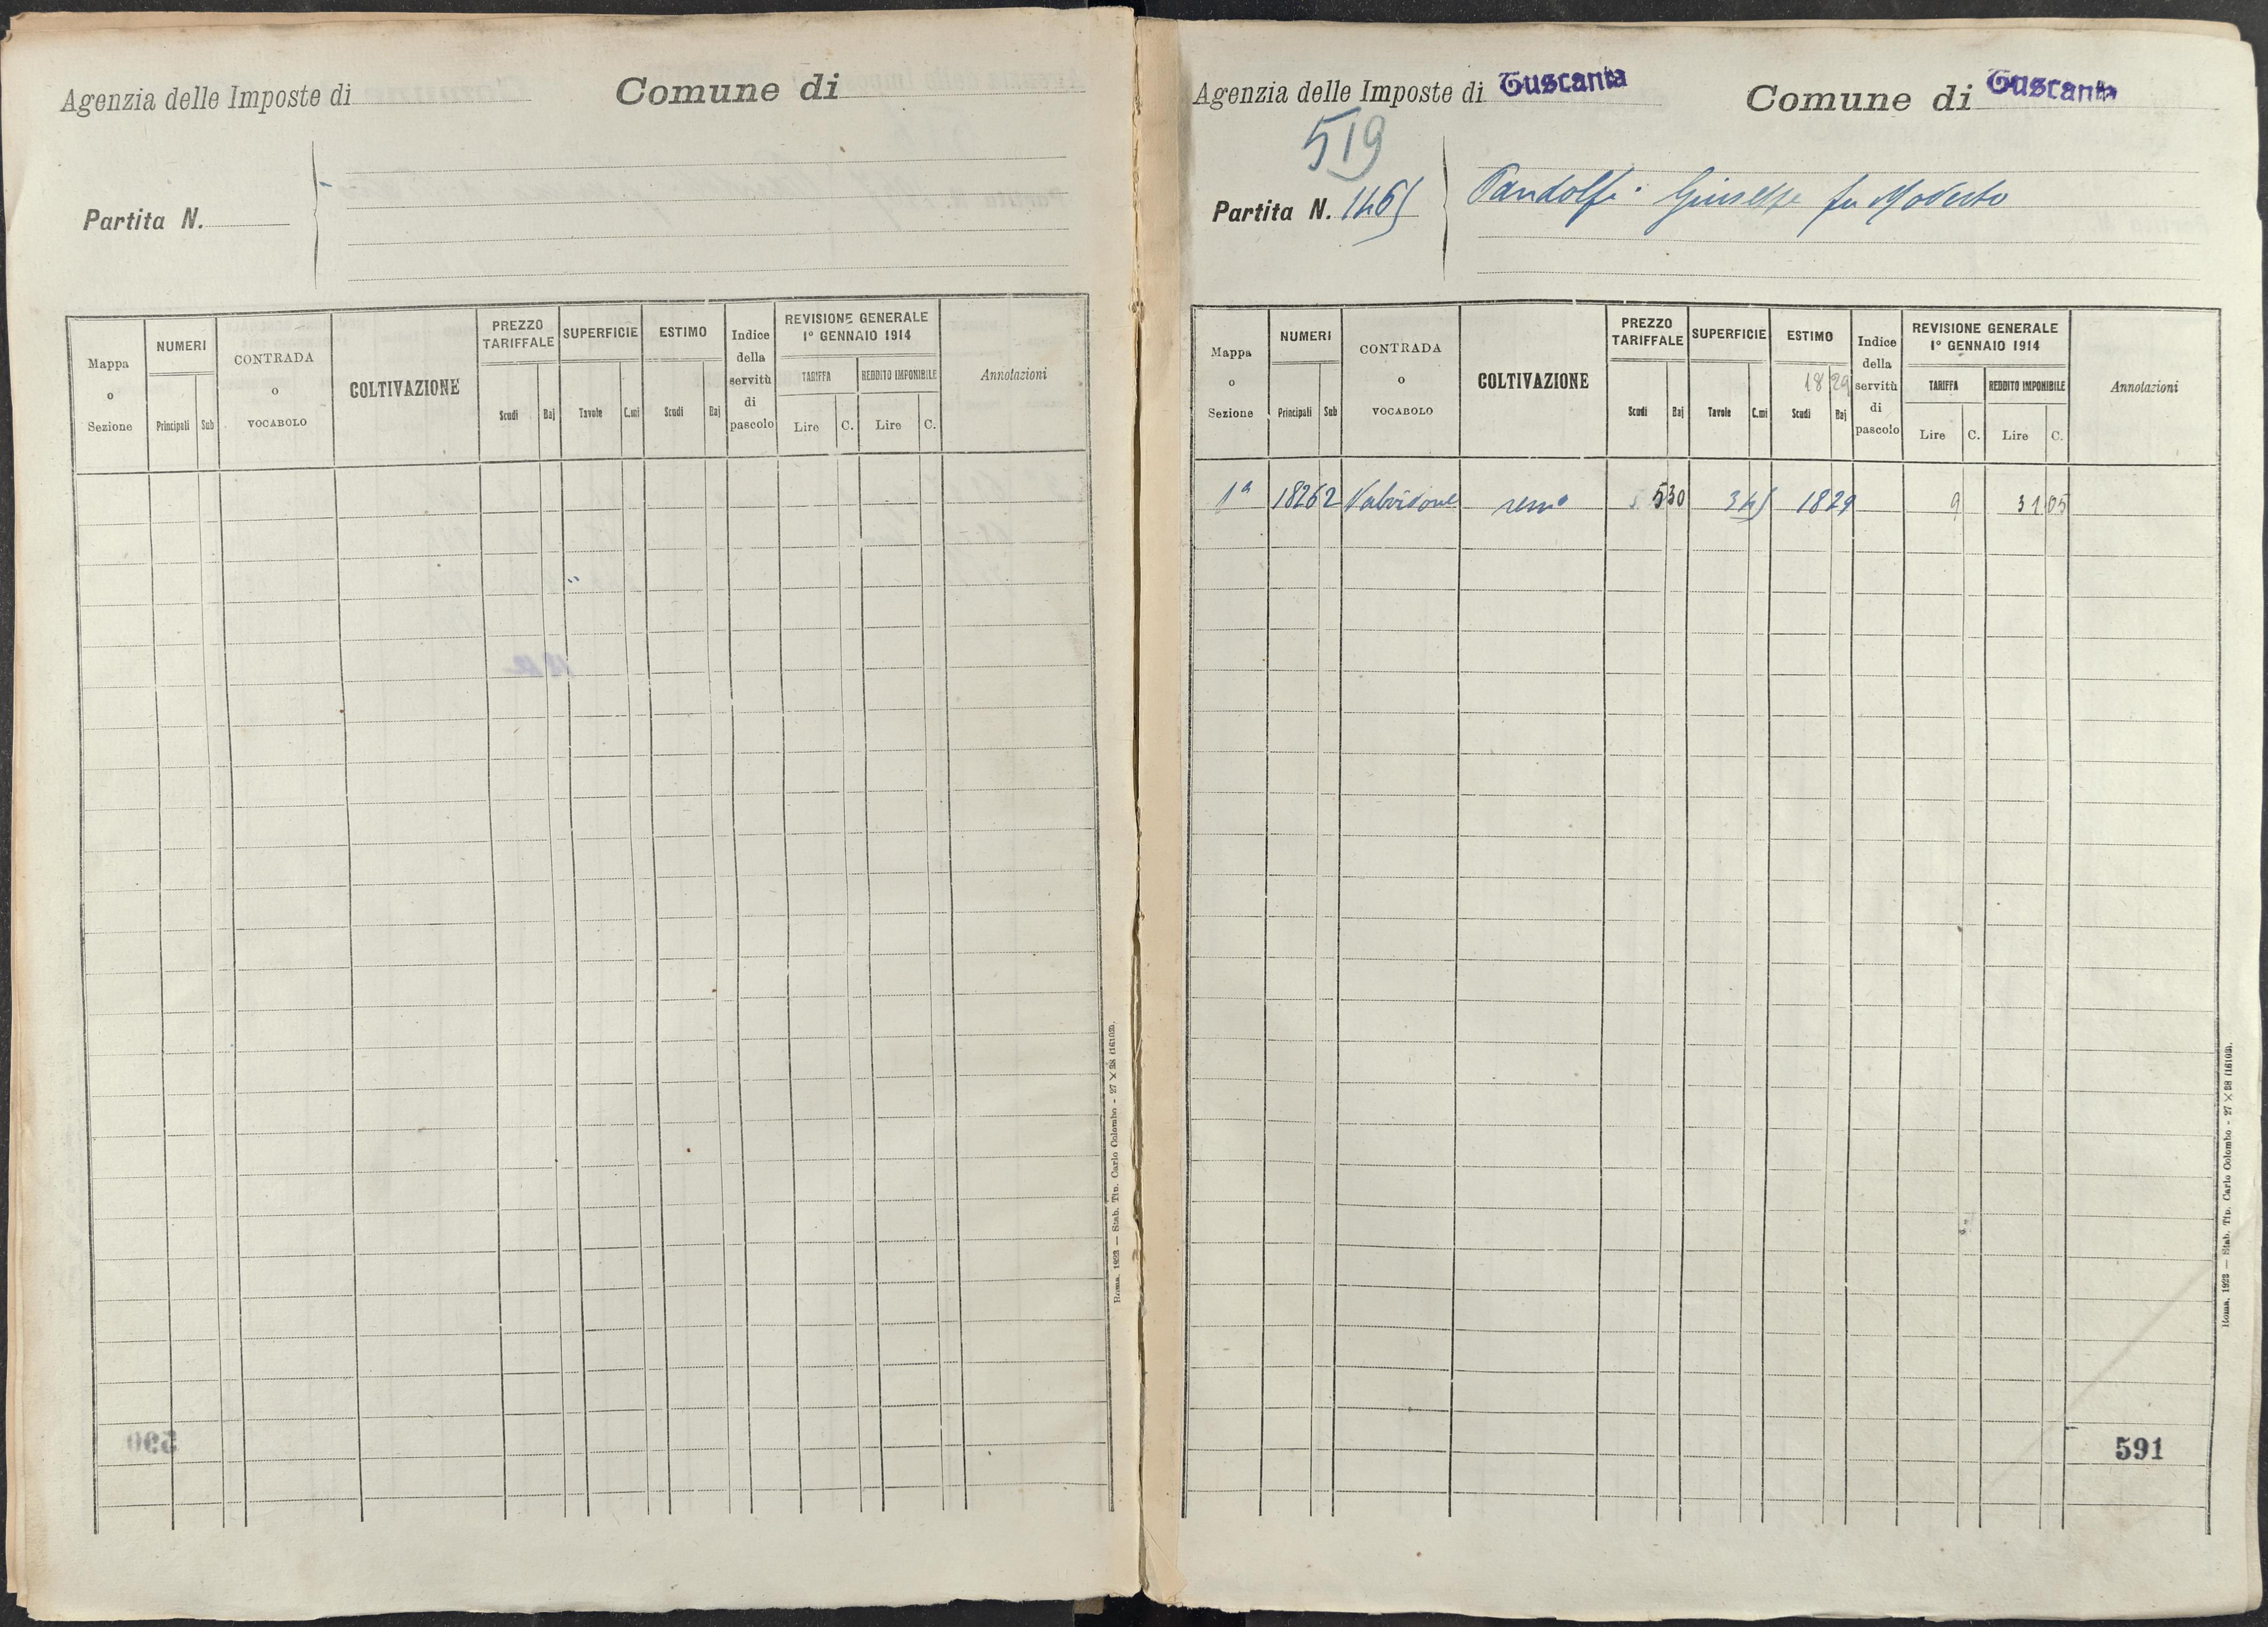 Agenzia delle Imposte di
Comune di
Partita N.
Mappa o Sezione
NUMERI
Principali
Sub
CONTRADA o VOCABOLO
COLTIVAZIONE
PREZZO TARIFFALE
Scudi
Baj
SUPERFICIE
Tavole
C.mi
ESTIMO
Scudi
Baj
Indice della servitù di pascolo
REVISIONE GENERALE
1° GENNAIO 1914
TARIFFA
Lire
C.
REDDITO IMPONIBILE
Lire
C.
Annotazioni
590
Roma, 1923 — Stab. Tip. Carlo Colombo - 27 × 38 (16103).
Agenzia delle Imposte di Tuscania
Comune di Tuscania
519
Partita N. 1465
Pandolfi Giuseppe fu Modesto
Mappa o Sezione
NUMERI
Principali
Sub
CONTRADA o VOCABOLO
COLTIVAZIONE
PREZZO TARIFFALE
Scudi
Baj
SUPERFICIE
Tavole
C.mi
ESTIMO
18 29
Scudi
Baj
Indice della servitù di pascolo
REVISIONE GENERALE
1° GENNAIO 1914
TARIFFA
Lire
C.
REDDITO IMPONIBILE
Lire
C.
Annotazioni
1ª 18262 Valvidone semo 5 30 345 18 29 9 31 05
591
Roma, 1923 — Stab. Tip. Carlo Colombo - 27 × 38 (16103).